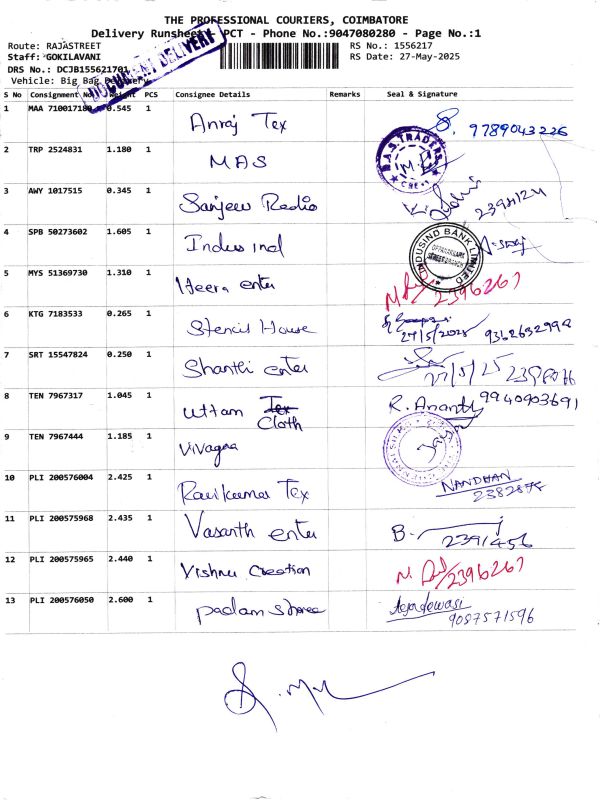 THE PROFESSIONAL COURIERS, COIMBATORE
Delivery Runsheet - PCT - Phone No.:9047080280 - Page No.:1
Route: RAJASTREET
RS No.: 1556217
Staff: GOKILAVANI
RS Date: 27-May-2025
DRS No.: DCJB155621701
Vehicle: Big Bag Delivery
DOCUMENT DELIVERY
S No Consignment No Weight PCS Consignee Details Remarks Seal & Signature
1 MAA 710017180 0.545 1 Anraj Tex 9789043226
2 TRP 2524831 1.180 1 MAS M.A.S. TRADERS
3 AWY 1017515 0.345 1 Sanjeev Radio 2394124
4 SPB 50273602 1.605 1 Indus ind INDUSIND BANK LIMITED
5 MYS 51369730 1.310 1 Heera enter 2396267
6 KTG 7183533 0.265 1 Stencil House 27/5/2025 9362632998
7 SRT 15547824 0.250 1 Shanthi enter 27/5/25 2398076
8 TEN 7967317 1.045 1 Uttam Tex Cloth R. Ananth 9940903691
9 TEN 7967444 1.185 1 Vivagaa
10 PLI 200576004 2.425 1 Ravikumar Tex NANDHAN 2382878
11 PLI 200575968 2.435 1 Vasanth enter B. 2391456
12 PLI 200575965 2.440 1 Vishnu Creation 2396267
13 PLI 200576050 2.600 1 padam store 9087571596